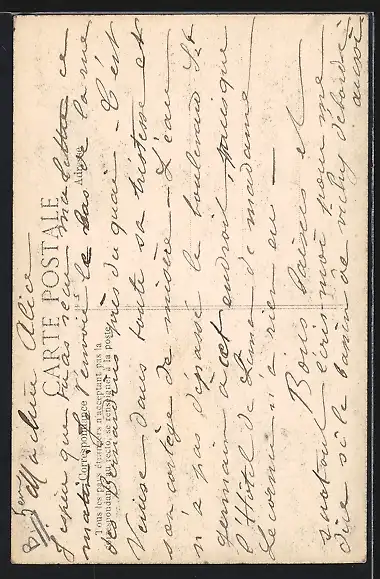 CARTE POSTALE
Correspondance
Adresse
Tous les pays étrangers n'acceptant pas la
correspondance au recto, se renseigner à la poste.
Jeudi
Ma chère Alice
J'espère que tu as reçu ma lettre ce
matin. J'envoie le bas de la rue
des Bernardins près du quai — C'est
Venise dans toute sa tristesse et
son cortège de misère — L'eau
n'a pas dépassé le boulevard St
germain à cet endroit, puisque
l'Hôtel de Lima de madame
Lecornu n'a rien eu —
Bons baisers et
surtout écris-moi pour me
dire si le bassin de Vichy déborde